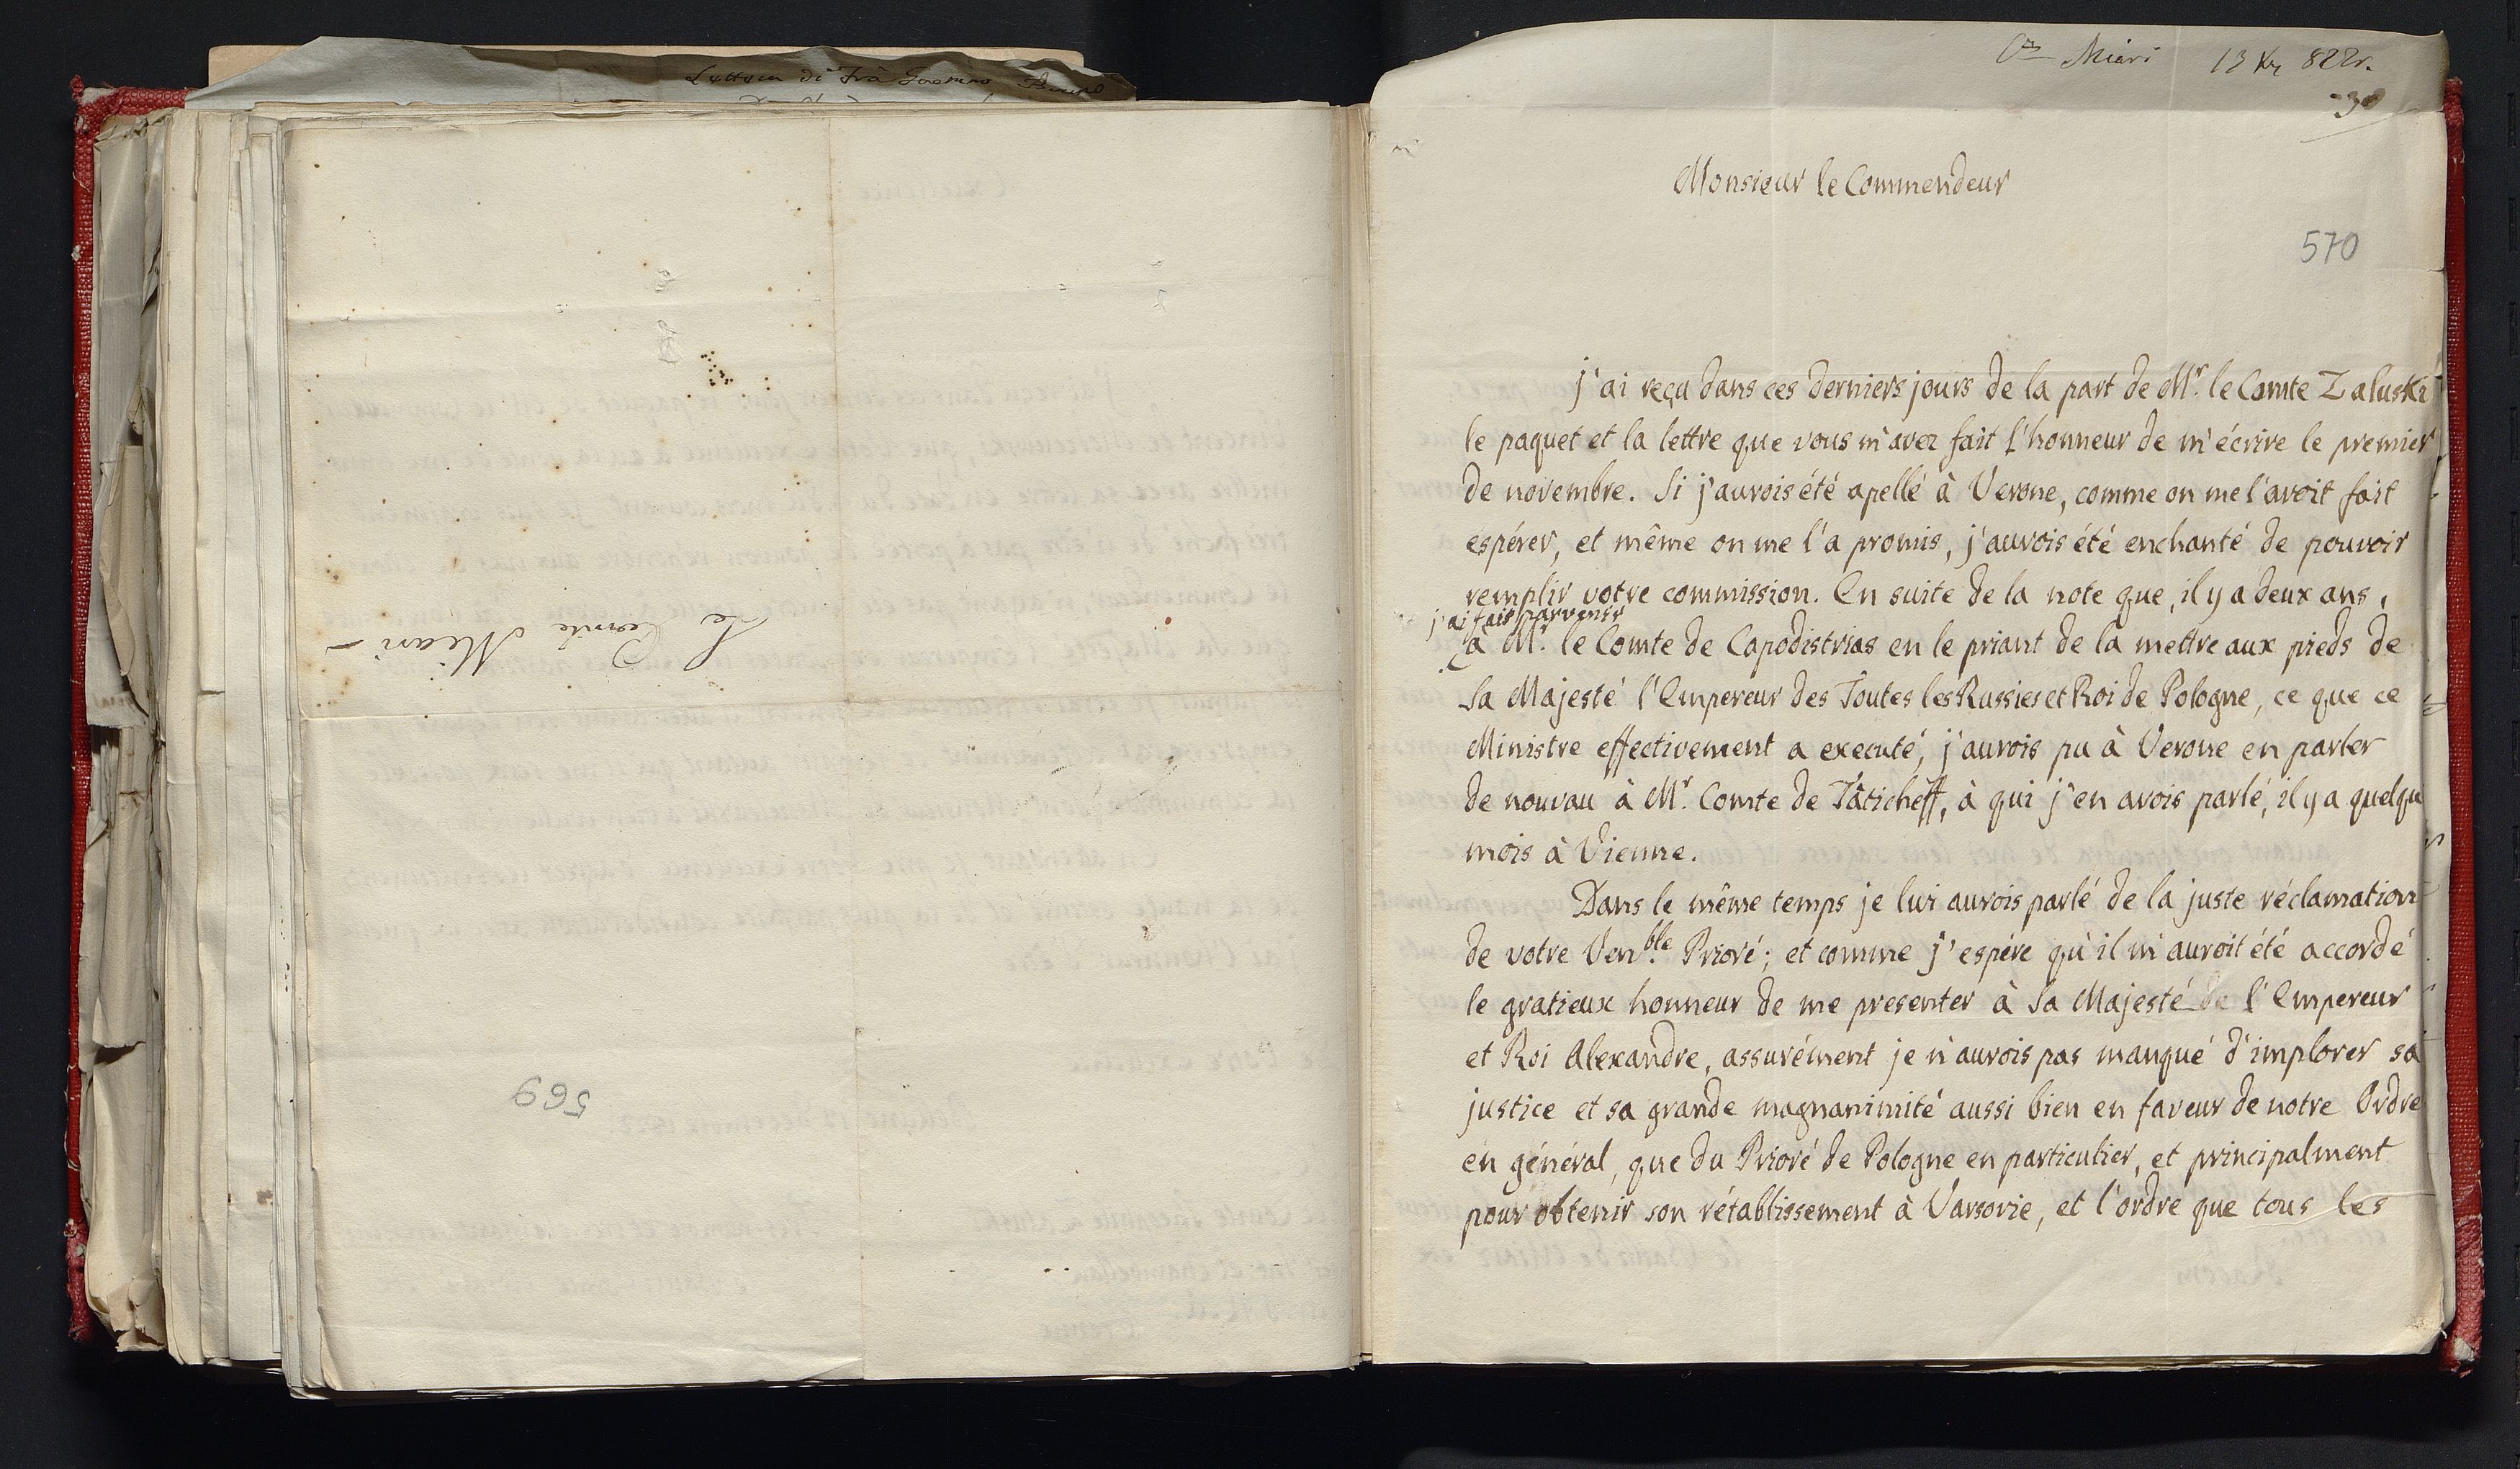 Lettera di Frà
Le Comte Miari –
569
Cte Miari 13 Xbr 822.
30
Monsieur le Commendeur
570
j'ai reçu dans ces derniers jours de la part de Mr. le Comte Zaluski
le paquet et la lettre que vous m'avez fait l'honneur de m'écrire le premier
de novembre. Si j'aurois été apellé à Verone, comme on me l'avoit fait
espérer, et même on me l'a promis, j'aurois été enchanté de pouvoir
remplir votre commission. En suite de la note que, il y a deux ans,
j'ai fais parvenir
à Mr. le Comte de Capodistrias en le priant de la mettre aux pieds de
Sa Majesté l'Empereur des Toutes les Russies et Roi de Pologne, ce que ce
Ministre effectivement a executé, j'aurois pu à Verone en parler
de nouvau à Mr. Comte de Tâticheff, à qui j'en avois parlé, il y a quelque
mois à Vienne.
Dans le même temps je lui aurois parlé de la juste réclamation
de votre Venble. Prioré; et comme j'espére qu'il m'auroit été accordé
le gratieux honneur de me presenter à Sa Majesté de l'Empereur
et Roi Alexandre, assurément je n'aurois pas manqué d'implorer sa
justice et sa grande magnanimité aussi bien en faveur de notre Ordre
en général, que du Prioré de Pologne en particulier, et principalment
pour obtenir son rétablissement à Varsovie, et l'ordre que tous les